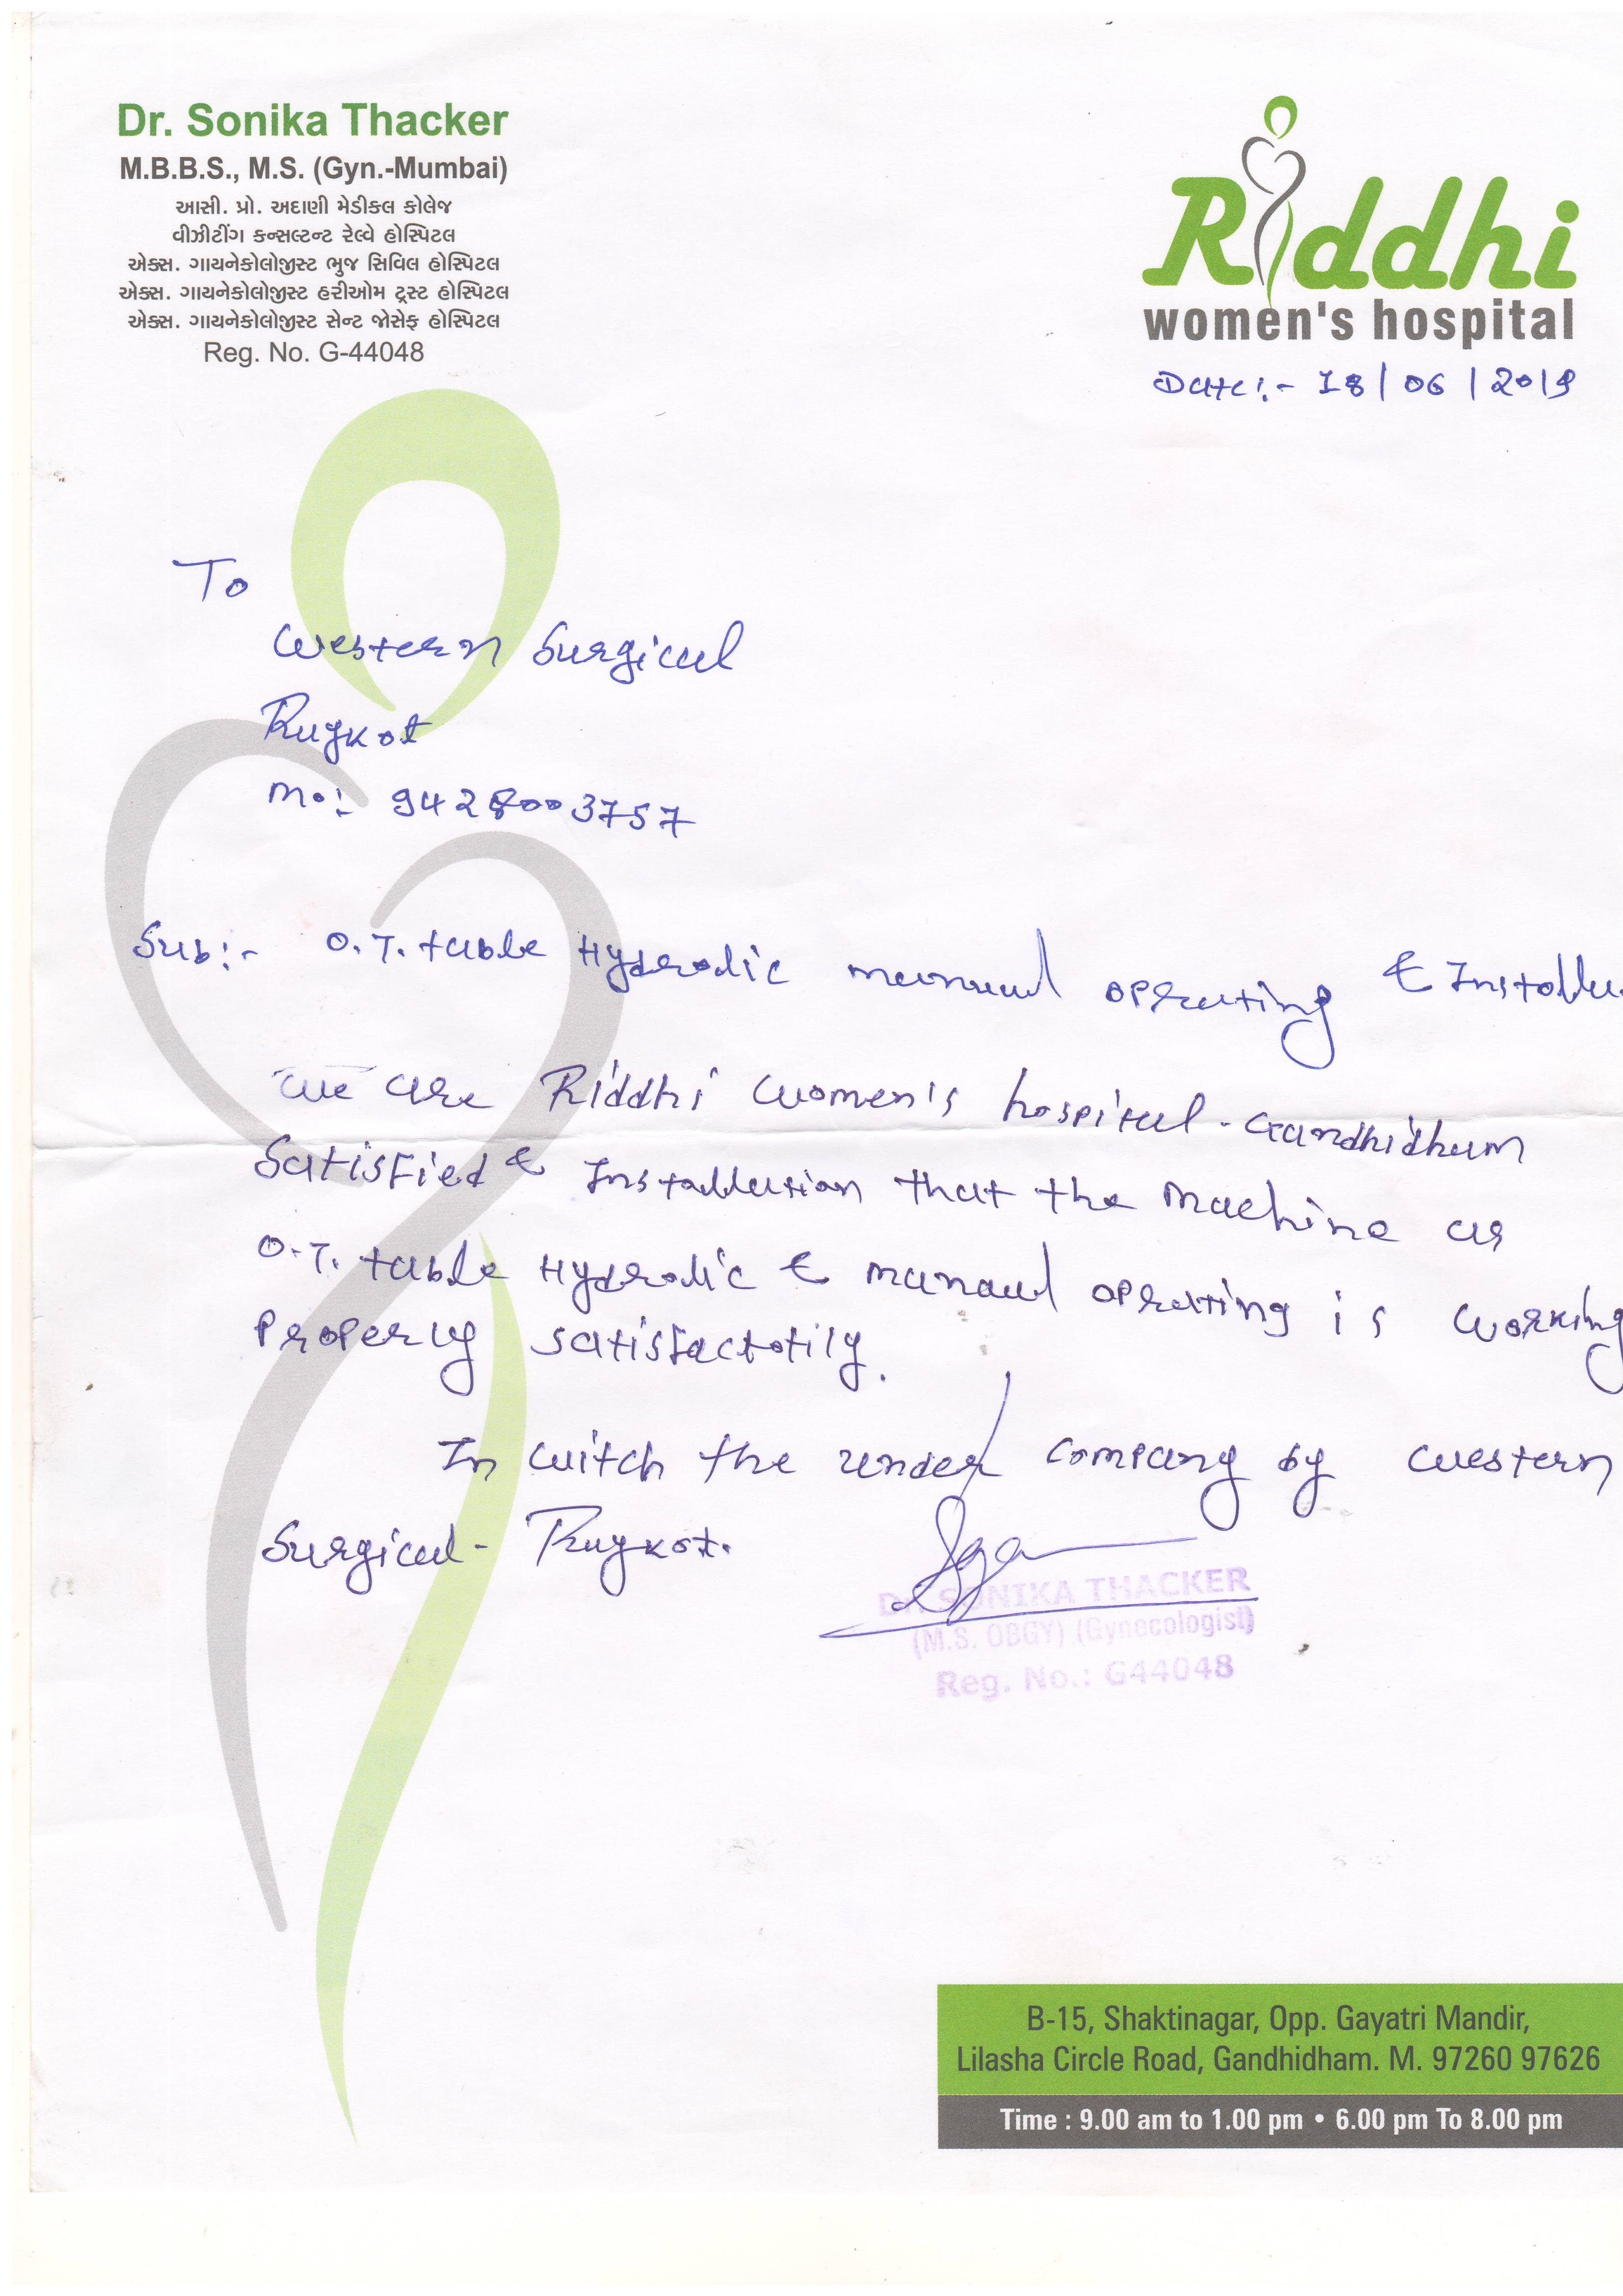 Dr. Sonika Thacker
M.B.B.S., M.S. (Gyn.-Mumbai)
આસી. પ્રો. અદાણી મેડીકલ કોલેજ
વીઝીટીંગ કન્સલ્ટન્ટ રેલ્વે હોસ્પિટલ
એક્સ. ગાયનેકોલોજીસ્ટ ભુજ સિવિલ હોસ્પિટલ
એક્સ. ગાયનેકોલોજીસ્ટ હરીઓમ ટ્રસ્ટ હોસ્પિટલ
એક્સ. ગાયનેકોલોજીસ્ટ સેન્ટ જોસેફ હોસ્પિટલ
Reg. No. G-44048
Riddhi
women's hospital
Date:- 18/06/2019
To
Western Surgical
Rajkot
mo:
Sub:- O.T. table Hydrolic manual oprating & Installa
We are Riddhi women's hospital - Gandhidham
Satisfied & Installation that the machine as
O.T. table Hydrolic & manaul oprating is working
Properly satisfactotily.
In witch the under company by western
Surgical - Rajkot.
Dr. SONIKA THACKER
(M.S. OBGY) (Gynecologist)
Reg. No.: G44048
B-15, Shaktinagar, Opp. Gayatri Mandir,
Lilasha Circle Road, Gandhidham. M. 97260 97626
Time : 9.00 am to 1.00 pm • 6.00 pm To 8.00 pm